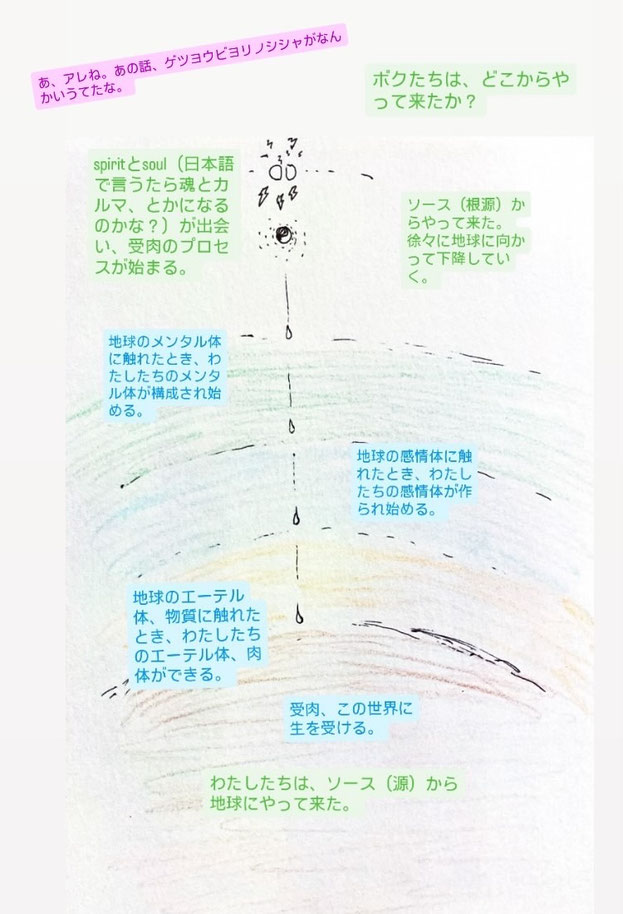 あ、アレね。あの話、ゲツヨウビヨリノシシャがなん
かいうてたな。
ボクたちは、どこからや
って来たか？
spiritとsoul（日本語
で言うたら魂とカ
ルマ、とかになる
のかな？）が出会
い、受肉のプロセ
スが始まる。
ソース（根源）か
らやって来た。
徐々に地球に向か
って下降してい
く。
地球のメンタル体
に触れたとき、わ
たしたちのメンタ
ル体が構成され始
める。
地球の感情体に触
れたとき、わたし
たちの感情体が作
られ始める。
地球のエーテル
体、物質に触れた
とき、わたしたち
のエーテル体、肉
体ができる。
受肉、この世界に
生を受ける。
わたしたちは、ソース（源）から
地球にやって来た。